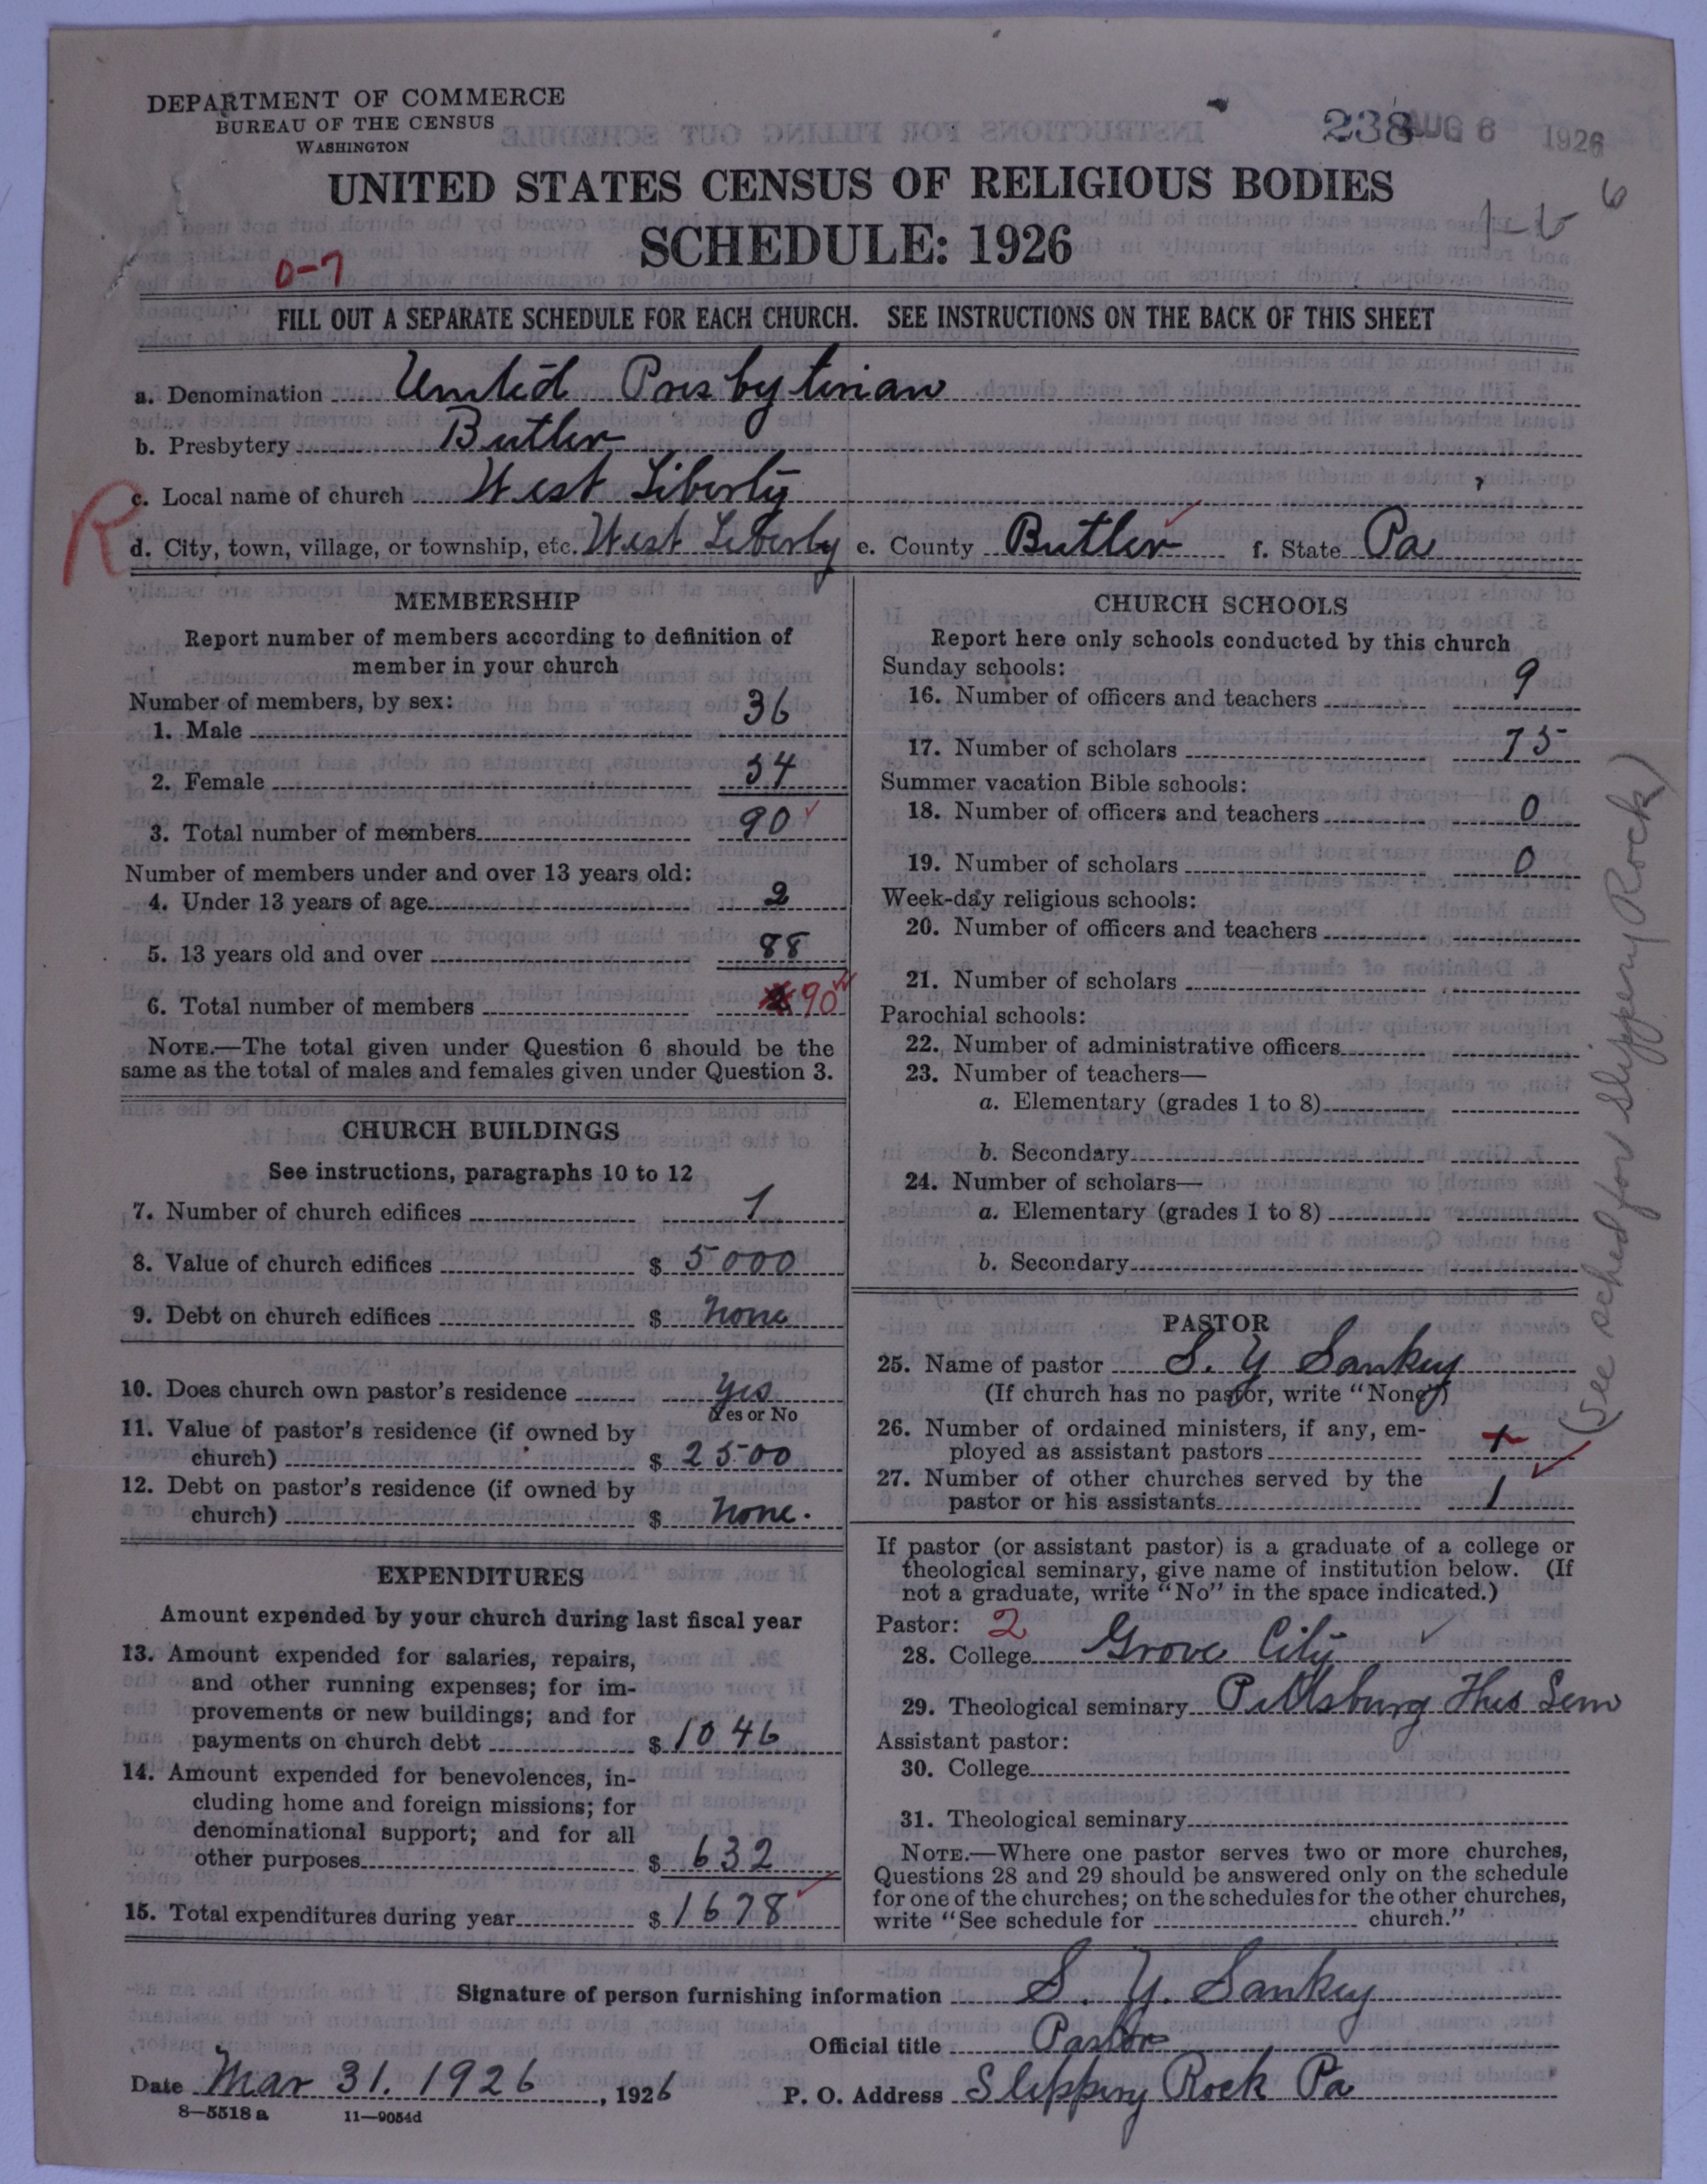 DEPARTMENT OF COMMERCE
BUREAU OF THE CENSUS
WASHINGTON
238 AUG 6 1926
6
UNITED STATES CENSUS OF RELIGIOUS BODIES
SCHEDULE: 1926
0-7
FILL OUT A SEPARATE SCHEDULE FOR EACH CHURCH. SEE INSTRUCTIONS ON THE BACK OF THIS SHEET
a. Denomination United Presbyterian
b. Presbytery Butler
c. Local name of church West Liberty
R
d. City, town, village, or township, etc. West Liberty e. County Butler f. State Pa
MEMBERSHIP
Report number of members according to definition of
member in your church
Number of members, by sex:
1. Male 36
2. Female 54
3. Total number of members 90
Number of members under and over 13 years old:
4. Under 13 years of age 2
5. 13 years old and over 88
6. Total number of members 90
NOTE.—The total given under Question 6 should be the
same as the total of males and females given under Question 3.
CHURCH BUILDINGS
See instructions, paragraphs 10 to 12
7. Number of church edifices 1
8. Value of church edifices $ 5000
9. Debt on church edifices $ none
10. Does church own pastor's residence yes
Yes or No
11. Value of pastor's residence (if owned by
church) $ 2500
12. Debt on pastor's residence (if owned by
church) $ none.
EXPENDITURES
Amount expended by your church during last fiscal year
13. Amount expended for salaries, repairs,
and other running expenses; for im-
provements or new buildings; and for
payments on church debt $ 1046
14. Amount expended for benevolences, in-
cluding home and foreign missions; for
denominational support; and for all
other purposes $ 632
15. Total expenditures during year $ 1678
CHURCH SCHOOLS
Report here only schools conducted by this church
Sunday schools:
16. Number of officers and teachers 9
17. Number of scholars 75
Summer vacation Bible schools:
18. Number of officers and teachers 0
19. Number of scholars 0
Week-day religious schools:
20. Number of officers and teachers
21. Number of scholars
Parochial schools:
22. Number of administrative officers
23. Number of teachers—
a. Elementary (grades 1 to 8)
b. Secondary
24. Number of scholars—
a. Elementary (grades 1 to 8)
b. Secondary
PASTOR
25. Name of pastor S. Y Sankey
(If church has no pastor, write "None")
26. Number of ordained ministers, if any, em-
ployed as assistant pastors 1
27. Number of other churches served by the
pastor or his assistants 1
(See sched for Slippery Rock)
If pastor (or assistant pastor) is a graduate of a college or
theological seminary, give name of institution below. (If
not a graduate, write "No" in the space indicated.)
Pastor: 2
28. College Grove City
29. Theological seminary Pittsburg Theo Sem
Assistant pastor:
30. College
31. Theological seminary
NOTE.—Where one pastor serves two or more churches,
Questions 28 and 29 should be answered only on the schedule
for one of the churches; on the schedules for the other churches,
write "See schedule for church."
Signature of person furnishing information S. Y. Sankey
Official title Pastor
Date Mar 31. 1926, 1926 P. O. Address Slippery Rock Pa
8—5518 a 11—9054d